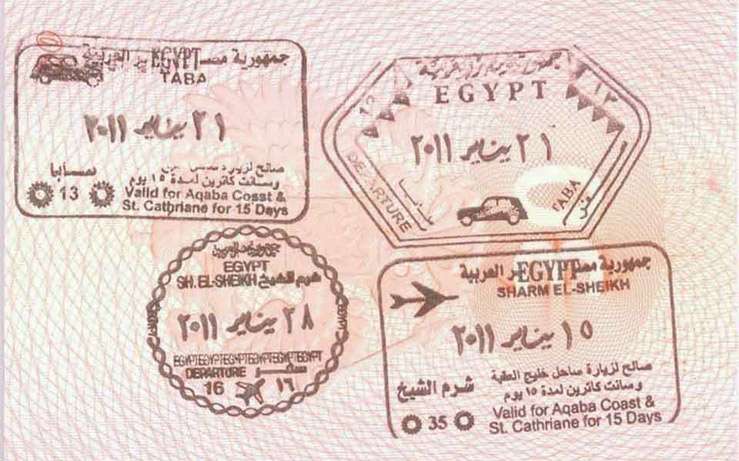 جمهورية مصر العربية
EGYPT
TABA
٢١ يناير ٢٠١١
صالح لزيارة ساحل خليج
وسانت كاترين لمدة ١٥ يوم
13
Valid for Aqaba Cosst &
St. Cathriane for 15 Days
جمهورية مصر العربية
EGYPT
12 ١٢
٢١ يناير ٢٠١١
DEPARTURE
TABA
EGYPT
SH. EL-SHEIKH شرم الشيخ
٢٨ يناير ٢٠١١
EGYPTEGYPTEGYPTEGYPTEGYPTEGYPT
DEPARTURE سفر
16 ١٦
جمهورية مصر العربية
EGYPT
SHARM EL-SHEIKH
١٥ يناير ٢٠١١
صالح لزيارة ساحل خليج العقبة
وسانت كاترين لمدة ١٥ يوم
شرم الشيخ
35
Valid for Aqaba Coast &
St. Cathriane for 15 Days